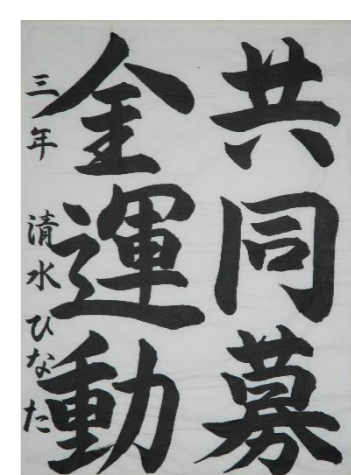 共同募
金運動
三年 清水ひなた